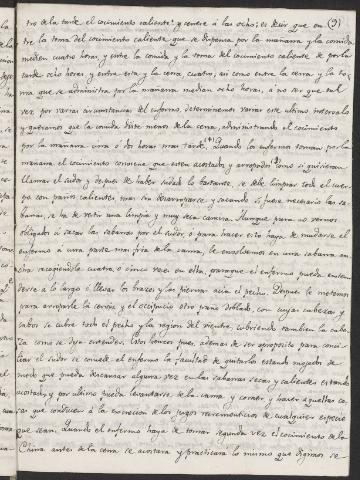 tro de la tarde el cocimiento caliente: y cenere á las ocho; es decir que en (9)
tre la toma del cocimiento caliente que se dispensa por la mañana y la comida
medien cuatro horas; y entre la comida y la toma del cocimiento caliente de por la
tarde ocho horas y entre esta y la cena, cuatro, asi como entre la cena y la to-
ma que se administra por la mañana median ocho horas, á no ser que tal
vez por varias circunstancias del enfermo, determinemos variar este ultimo intervalo
y queramos que la comida diste menos de la cena, administrando el cocimiento
por la mañana una ó dos horas mas tarde. Quando los enfermos toman por la
mañana el cocimiento conviene que esten acostados y arropados como si quisieran
llamar el sudor y despues de haber sudado lo bastante, se debe limpiar todo el cuer-
po con paños calientes mas sin desarroparse y sacando si fuese necesario las sa-
banas, se ha de vestir una limpia y muy seca camisa. Aunque para no vernos
obligados á sacar las sabanas por el sudor, ó para hacer esto haya de mudarse el
enfermo á una parte mas fria de la cama, le envolvemos en una sabana en
tera recogiendola cuatro, ó cinco veces en ella, para que el enfermo pueda esten-
derse á lo largo ó llevar los brazos y las piernas acia el pecho. Despues le metemos
para arroparle la cerviz y el occipucio otro paño doblado, con cuyas cabezas y
cabos se cubre todo el pecho y la region del vientre, cubriendo tambien la cabe-
za como se deja entender. Estos lienzos pues, ademas de ser aproposito para conci-
liar el sudor se concede al enfermo la facultad de quitarlos estando mojados de
modo que pueda descansar alguna vez en las sabanas secas y calientes estando
acostado, y por ultimo pueda levantarse de la cama, y comer, y hacer aquellas co-
sas que conducen á la excrecion de los jugos recrementicios de cualquier especie
que sean. Quando el enfermo haya de tomar segunda vez el cocimiento de la
China antes de la cena se acostara y practicará lo mismo que digimos se